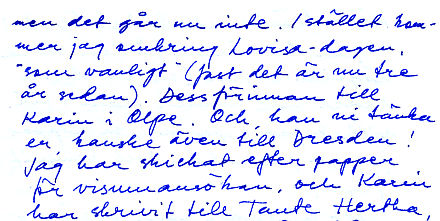 men det går nu inte. I stället kom-
mer jag omkring Lovisa-dagen,
"som vanligt" (fast det är nu tre
år sedan). Dessförinnan till
Karin i Olpe. Och kan ni tänka
er kanske även till Dresden!
Jag har skickat efter papper
för visumansökan, och Karin
har skrivit till Tante Hertha,